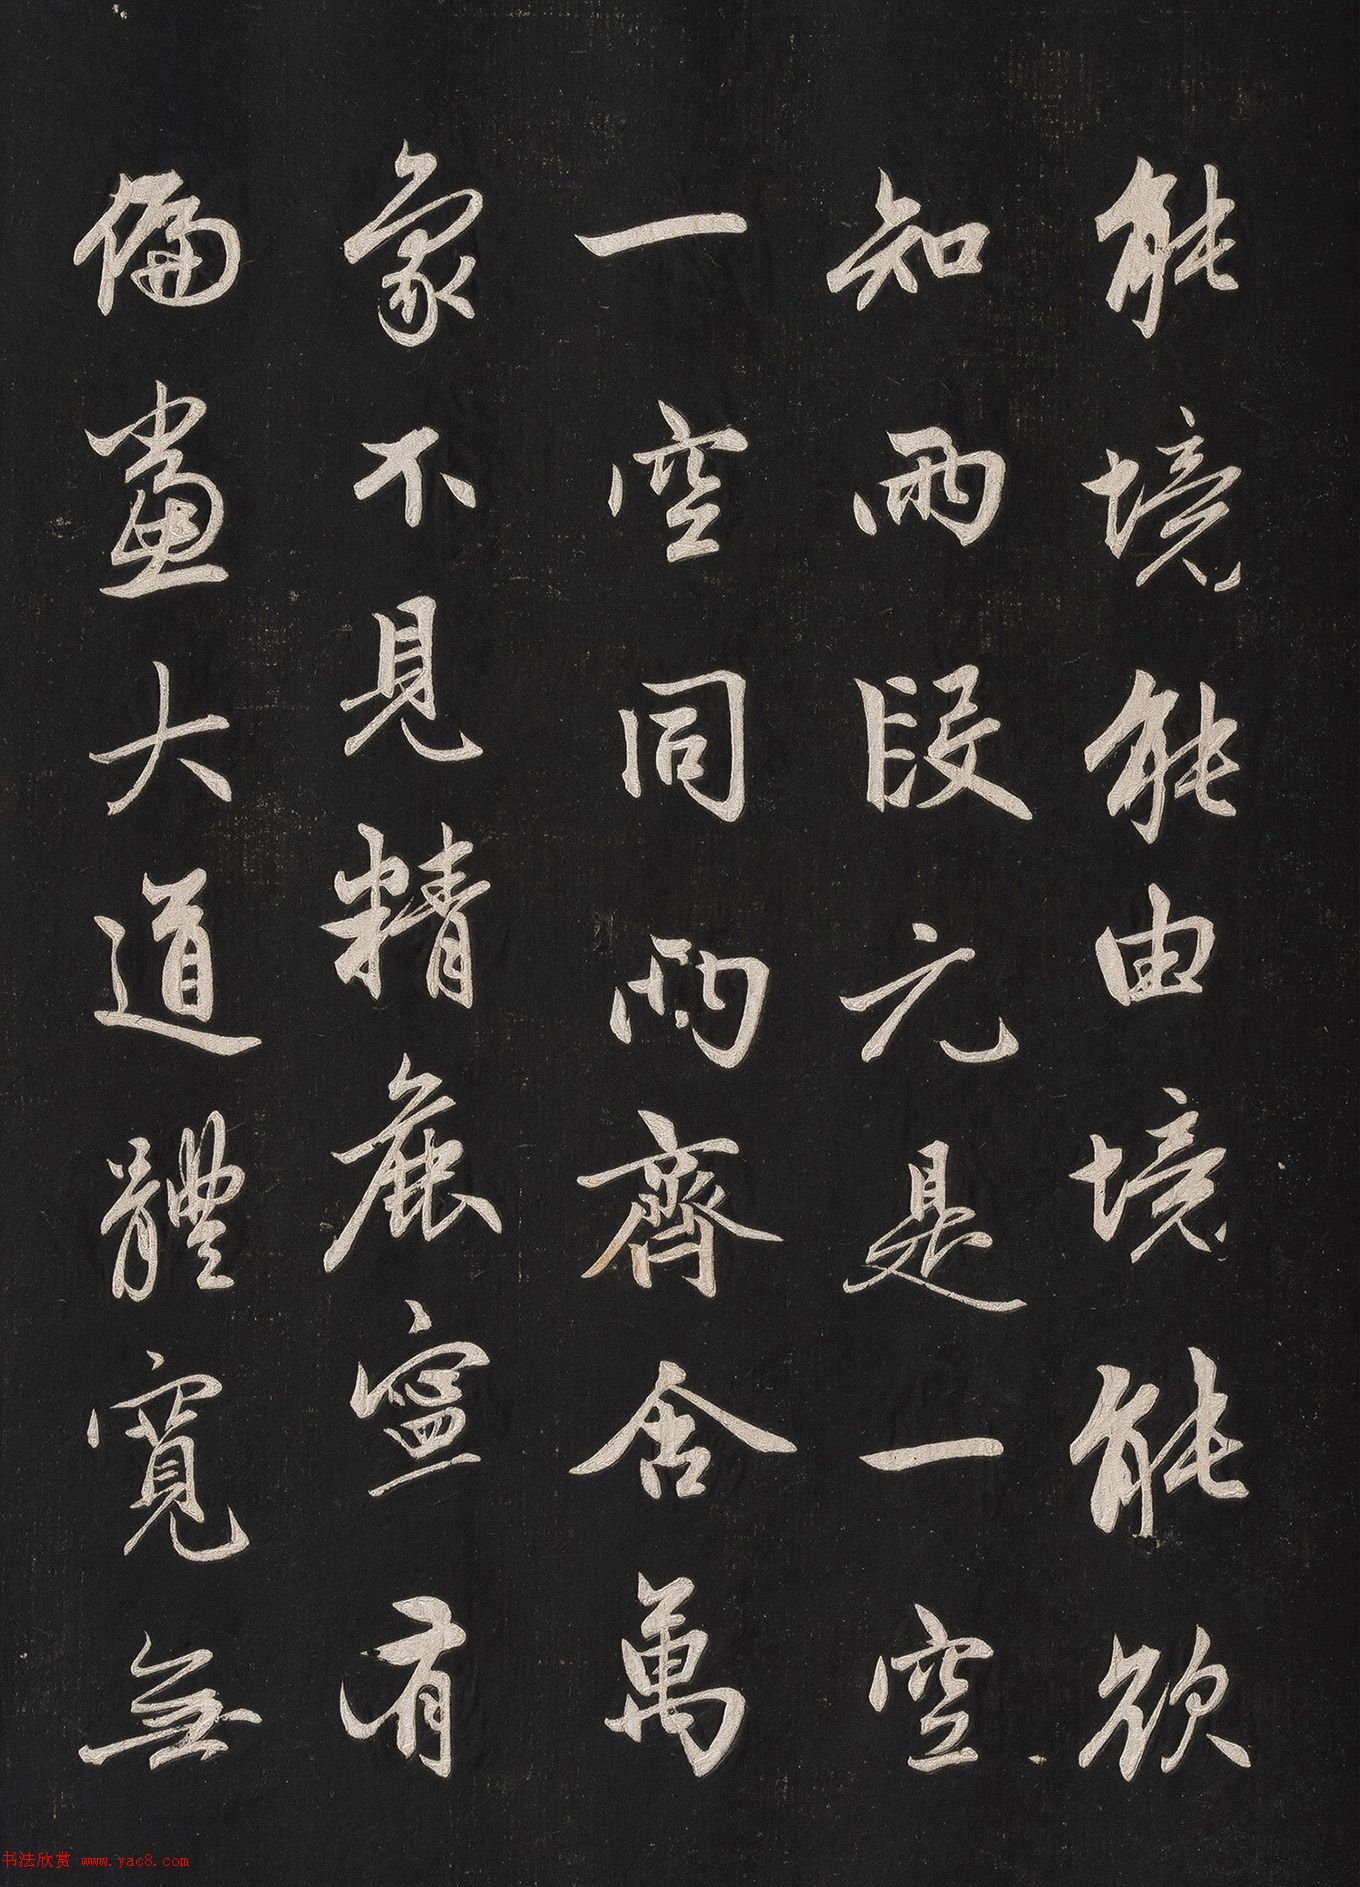 能境能由境能欲
知兩段元是一空
一空同兩齊含萬
象不見精麁寧有
偏黨大道體寬無
书法欣赏 www.yac8.com